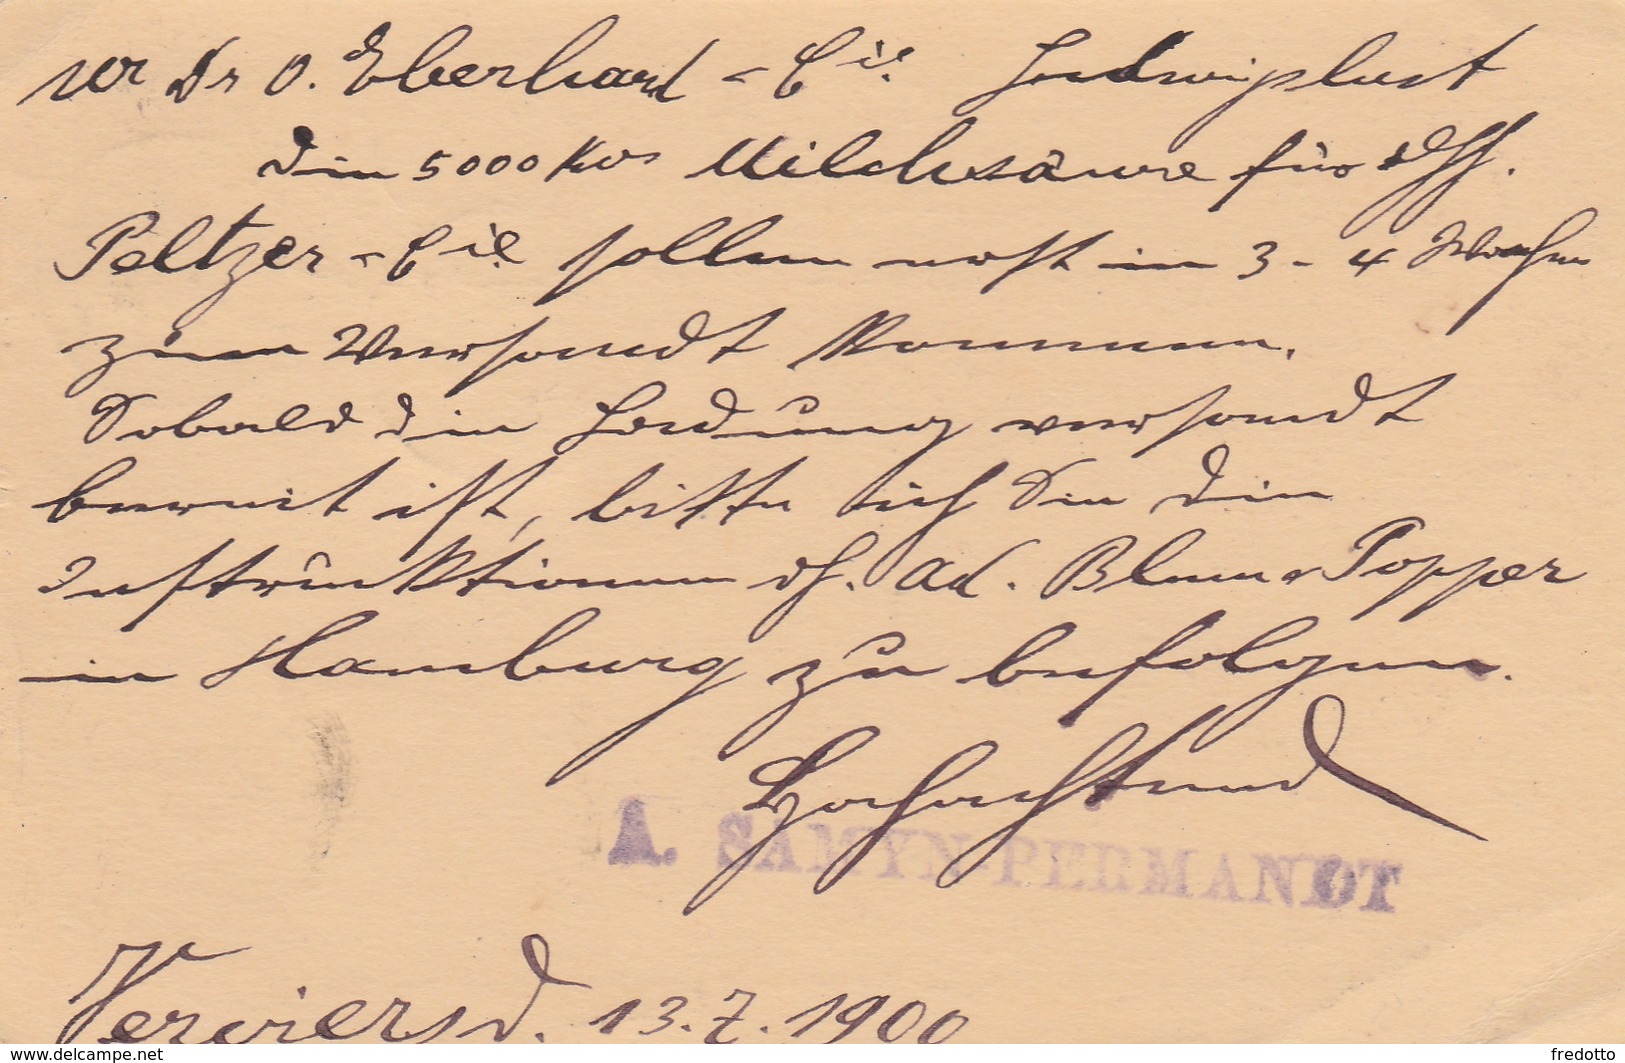 Dr O. Eberhard & Cie. Ludwigslust
Die 5000 Kos Milchsäure für HH.
Peltzer & Cie sollen erst in 3-4 Wochen
zum Versandt kommen.
Sobald die Ladung versandt
bereit ist, bitte ich Sie die
Instruktionen dh. Ad. Blum & Popper
in Hamburg zu befolgen.
Hochachtend
A. SAMYN-PERMANDT
Verviers d. 13.7.1900
delcampe.net
fredotto